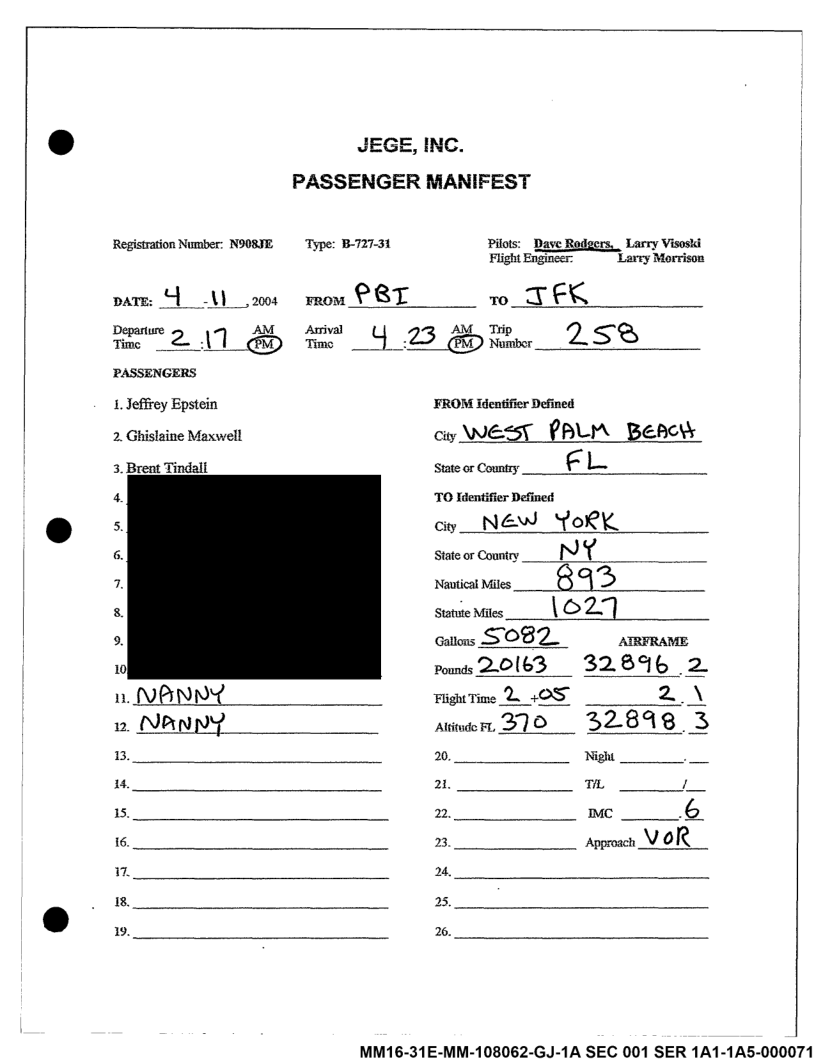 JEGE, INC.
PASSENGER MANIFEST
Registration Number: N908JE Type: B-727-31 Pilots: Dave Rodgers, Larry Visoski
Flight Engineer: Larry Morrison
DATE: 4 - 11, 2004 FROM PBI TO JFK
Departure Time 2:17 AM PM Arrival Time 4:23 AM PM Trip Number 258
PASSENGERS
1. Jeffrey Epstein
2. Ghislaine Maxwell
3. Brent Tindall
4.
5.
6.
7.
8.
9.
10
11. NANNY
12. NANNY
13.
14.
15.
16.
17.
18.
19.
FROM Identifier Defined
City WEST PALM BEACH
State or Country FL
TO Identifier Defined
City NEW YORK
State or Country NY
Nautical Miles 893
Statute Miles 1027
Gallons 5082 AIRFRAME
Pounds 20163 32896.2
Flight Time 2 +05 2.1
Altitude FL 370 32898.3
20. Night .
21. T/L /
22. IMC .6
23. Approach VOR
24.
25.
26.
MM16-31E-MM-108062-GJ-1A SEC 001 SER 1A1-1A5-000071